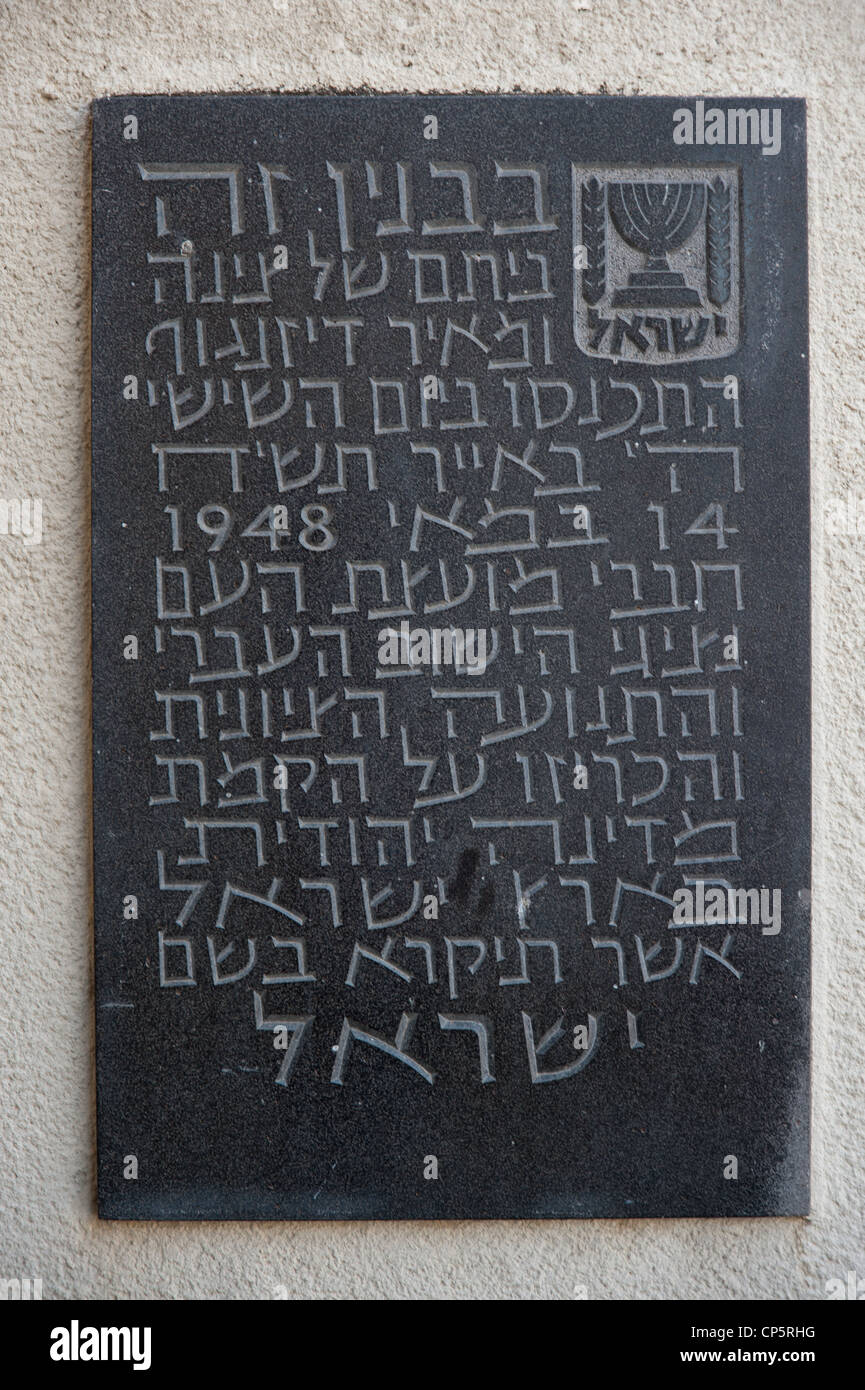 בבנין זה
ביתם של צינה
ומאיר דיזנגוף
ישראל
התכנסו ביום השישי
ה' באייר תש"ח
14 במאי 1948
חברי מועצת העם
נציגי הישוב העברי
והתנועה הציונית
והכריזו על הקמת
מדינה יהודית,
בארץ ישראל
אשר תיקרא בשם
ישראל
alamy
alamy
Image ID: CP5RHG
www.alamy.com